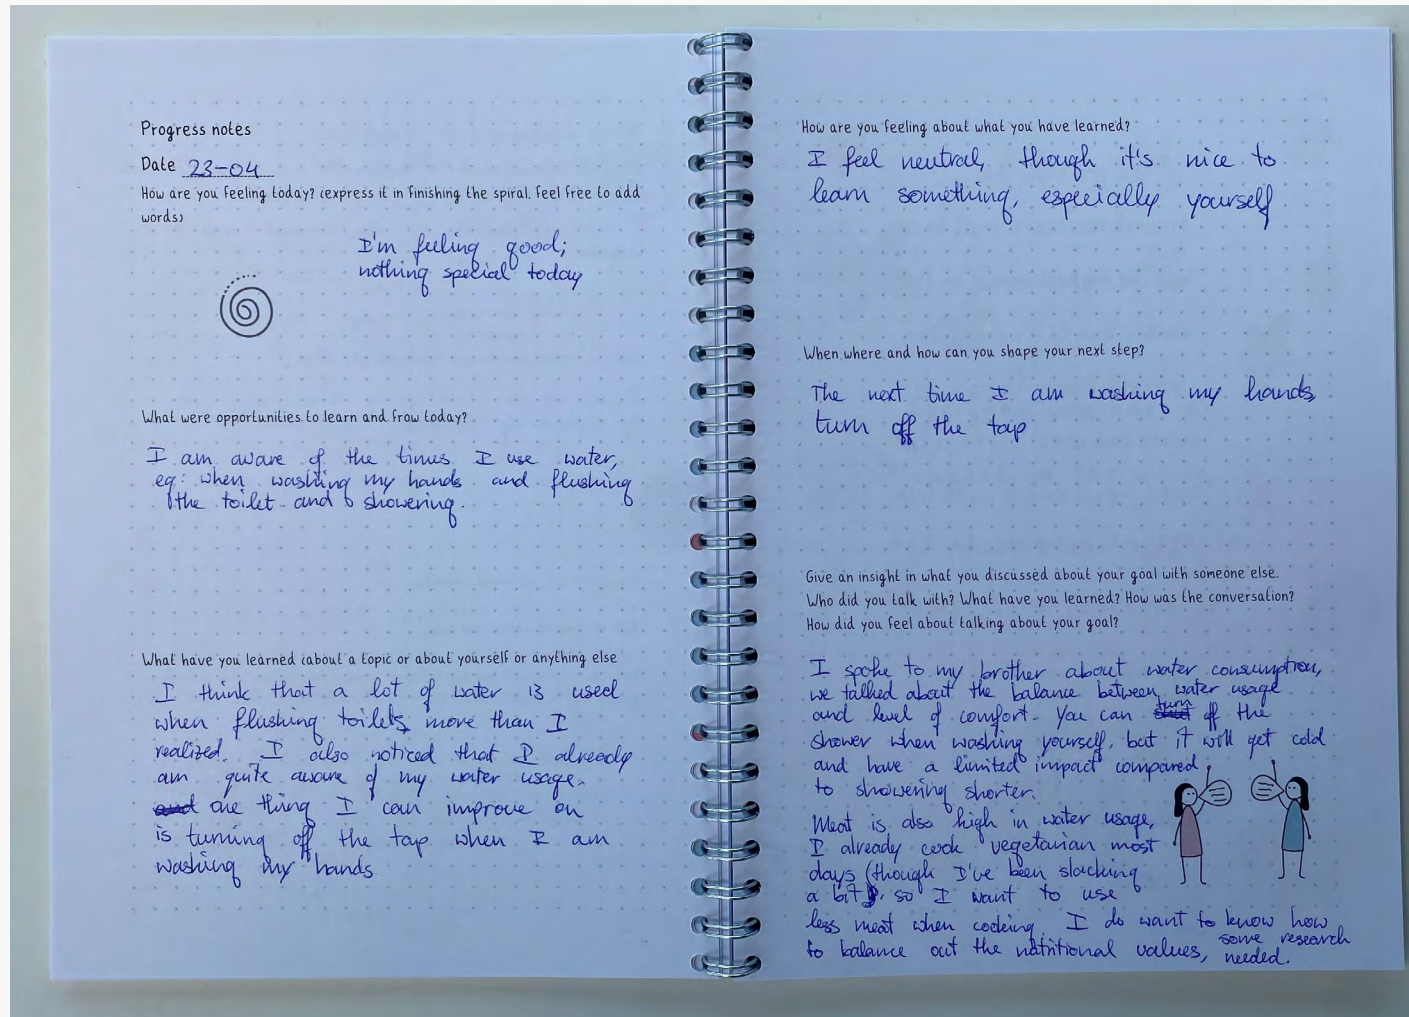 Progress notes
Date 23-04
How are you feeling today? (express it in finishing the spiral, feel free to add
words)
I'm feeling good;
nothing special today
What were opportunities to learn and frow today?
I am aware of the times I use water,
eg: when washing my hands and flushing
the toilet and showering.
What have you learned (about a topic or about yourself or anything else
I think that a lot of water is used
when flushing toilets, more than I
realized. I also noticed that I already
am quite aware of my water usage.
and one thing I can improve on
is turning off the tap when I am
washing my hands
How are you feeling about what you have learned?
I feel neutral, though it's nice to
learn something, especially yourself
When where and how can you shape your next step?
The next time I am washing my hands,
turn off the tap
Give an insight in what you discussed about your goal with someone else.
Who did you talk with? What have you learned? How was the conversation?
How did you feel about talking about your goal?
I spoke to my brother about water consumption,
we talked about the balance between water usage
and level of comfort. You can turn off the
shower when washing yourself, but it will get cold
and have a limited impact compared
to showering shorter.
Meat is also high in water usage,
I already cook vegetarian most
days (though I've been slacking
a bit), so I want to use
less meat when cooking. I do want to know how
to balance out the nutritional values, some research
needed.